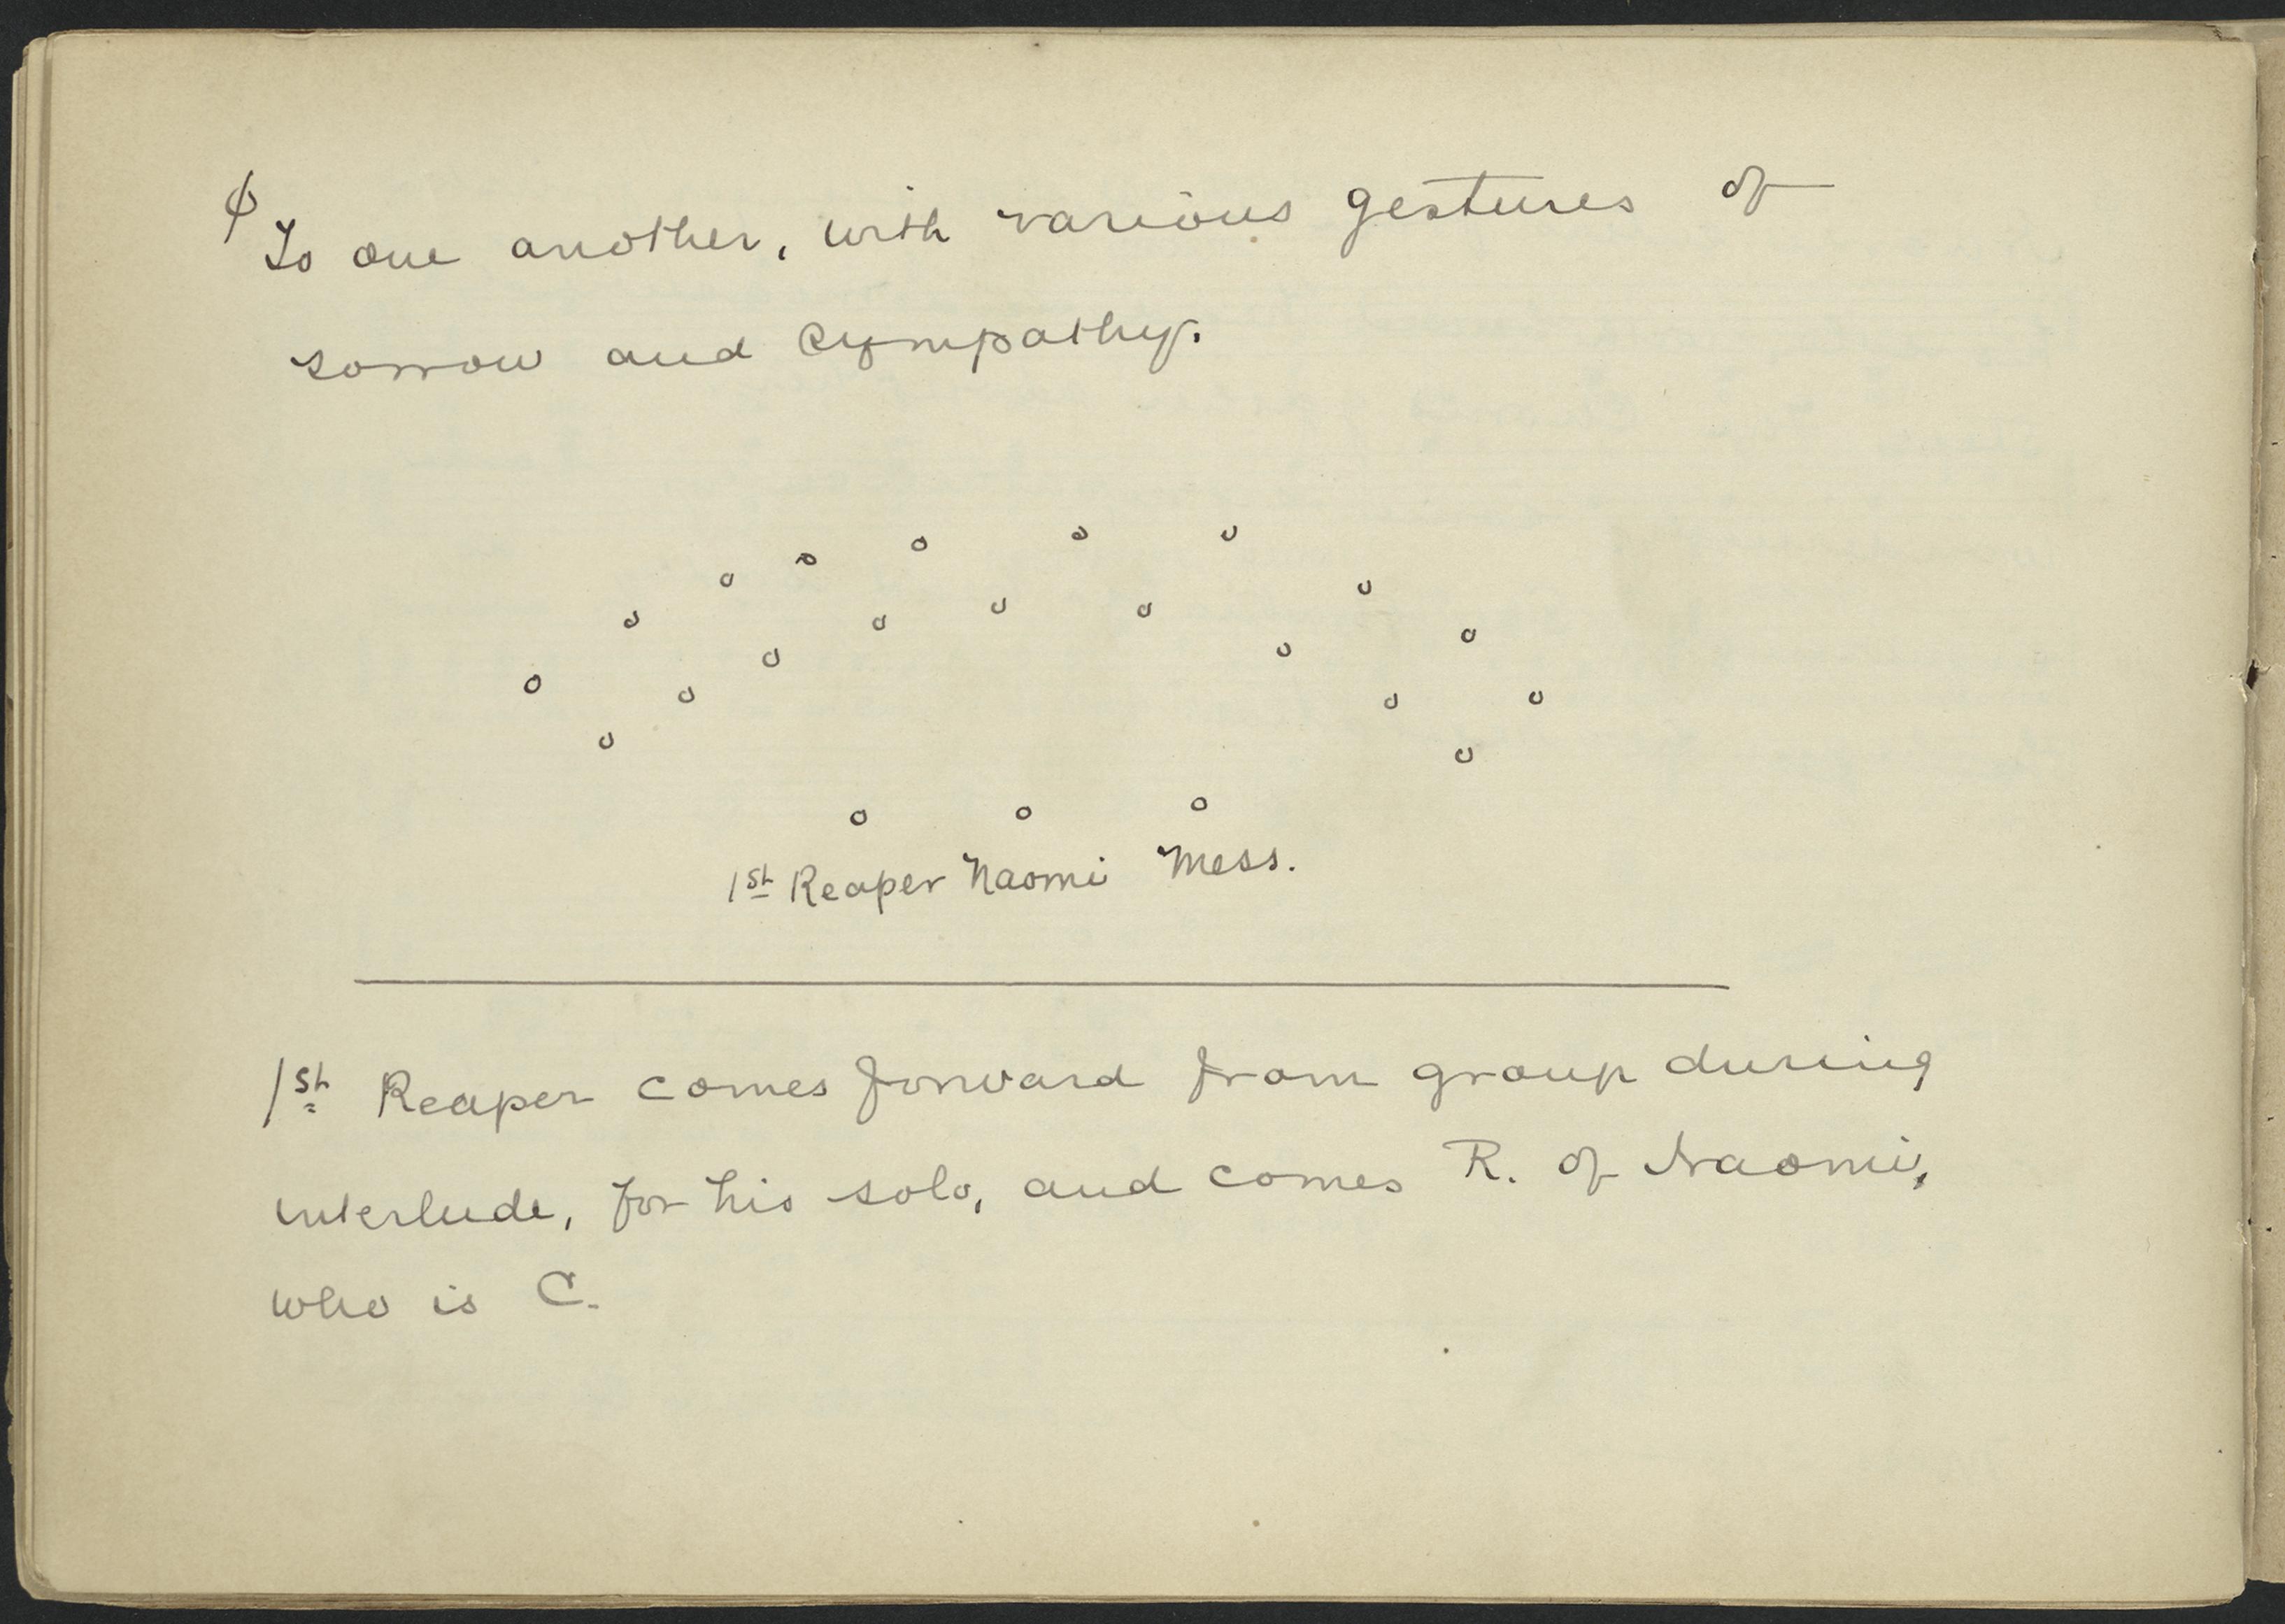 φ To one another, with various gestures of
sorrow and sympathy.
1st Reaper Naomi Mess.
1st Reaper comes forward from group during
interlude, for his solo, and comes R. of Naomi,
who is C.